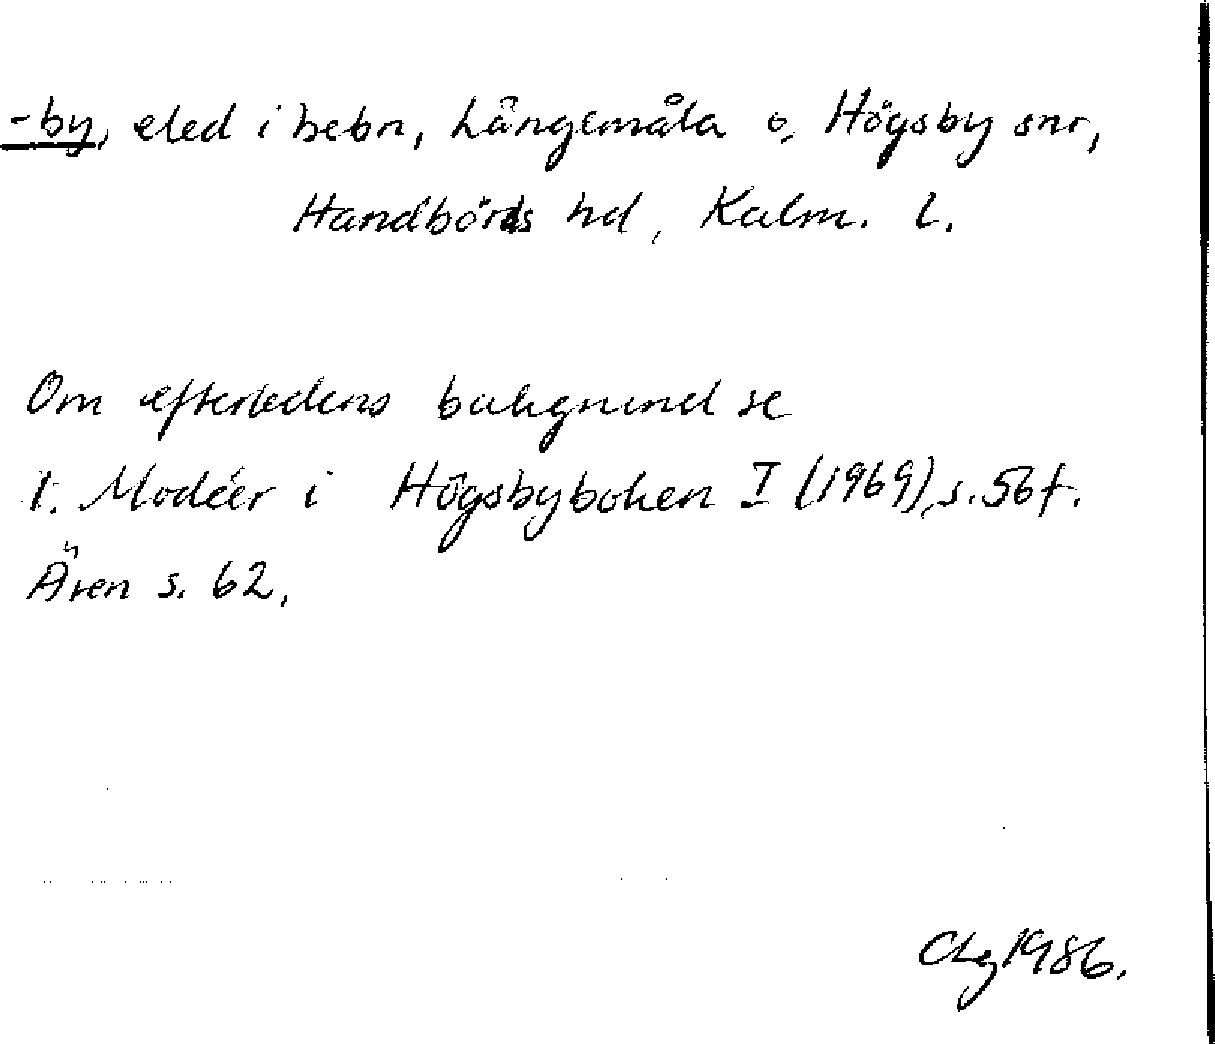 -by, eled i bebn, Långemåla o. Högsby snr,
Handbörds hd, Kalm. l.
Om efterledens bakgrund se
I. Modéer i Högsbyboken I (1969), s. 56 f.
Även s. 62.
CLg 1986.